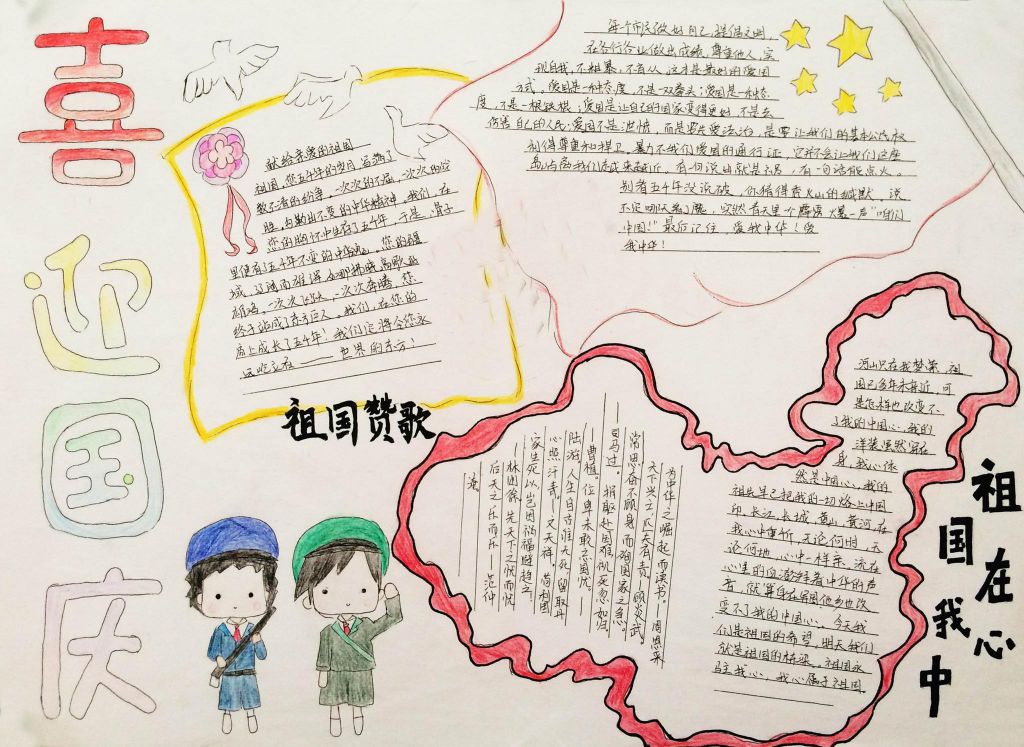 喜迎国庆
献给亲爱的祖国
祖国,您五千年的岁月,写满了
数不清的纷争,一次次的
不变的中华精神。我们,在
您的胸怀中生存了五千年,于是,骨子
里便有了五千年不变的中华魂。您的疆
域,辽阔而雄浑
雄鸡,一次次飞跃,一次次奔腾,您
终于站成了东方巨人。我们,在您的
肩上成长了五千年!我们定将令您永
远屹立在——世界的东方!
祖国赞歌
每个市民做好自己,提倡文明,
在各行各业做出成绩,尊重他人,实
现自我,不粗暴,不盲从,这才是最好的爱国
方式。爱国是一种态度,不是一双拳头;爱国是一种态
度,不是一根铁棍;爱国是让自己的国家变得更好,不是去
伤害自己的人民;爱国不是泄愤,而是
别得尊重和捍卫,暴力不是我们爱国的通行证,它并不会让我们这座
有一句说出就是祸,有一句话能点火。
别看五千年没说破,你猜得透火山的缄默,说
不定哪天着了魔,突然青天里一个霹雳大暴一声"咱们
中国!"最后记住,爱我中华!
我中华!
为中华之崛起而读书。——周恩来
天下兴亡,匹夫有责。——顾炎武
常思奋不顾身,而殉国家之急。
——司马迁
捐躯赴国难,视死忽如归。
——曹植。位卑未敢忘国忧。——
陆游。人生自古谁无死,留取丹
心照汗青。——文天祥。苟利国
家生死以,岂因祸福避趋之。
——林则徐。先天下之忧而忧,
后天之乐而乐。——范仲
淹
河山只在我梦萦,祖
国已多年未亲近,可
是怎样也改变不
了我的中国心。我的
洋装虽然穿在
身,我心依
然是中国心,我的
祖先早已把我的一切烙上中国
印,长江,长城,黄山,黄河在
我心中重千斤,无论何时,无
论何地,心中一样亲。流在
心里的血,澎湃着中华的声
音,就算身在异国他乡也改
变不了我的中国心。今天我
们是祖国的希望,明天我们
就是祖国的栋梁。祖国永
驻我心,我心属于祖国。
祖国在我心中